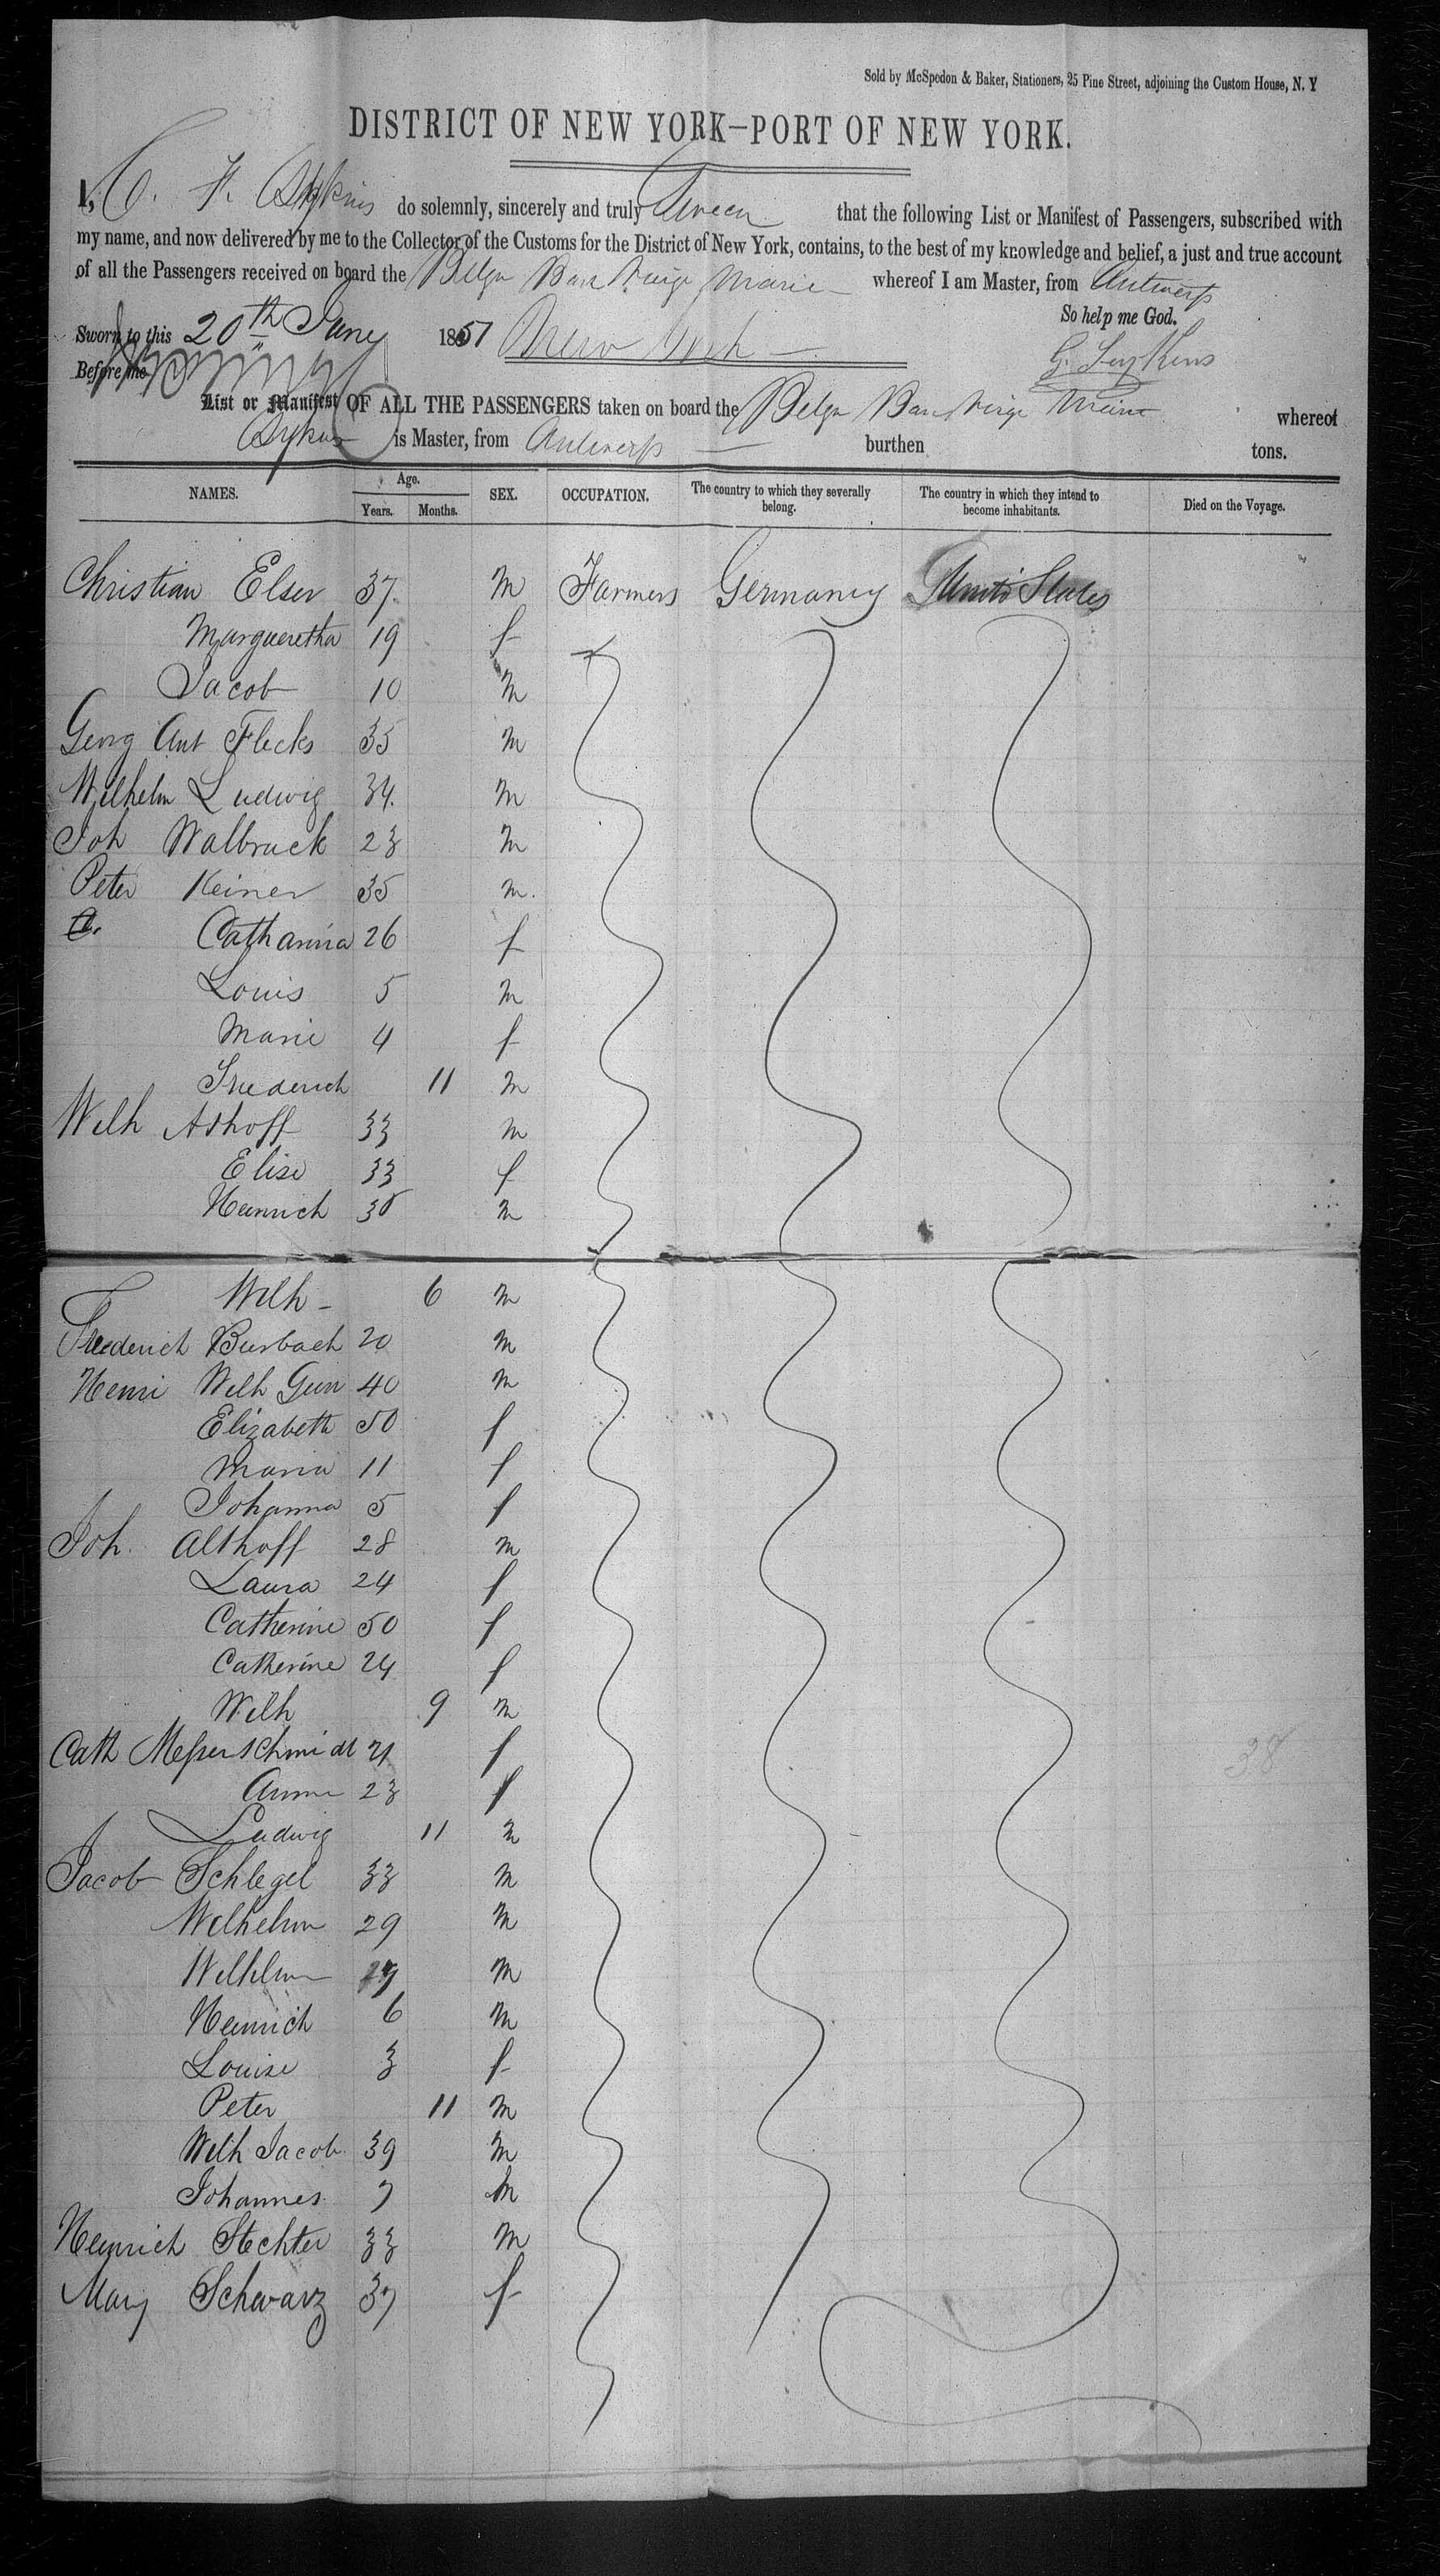 Sold by McSpedon & Baker, Stationers, 25 Pine Street, adjoining the Custom House, N. Y
DISTRICT OF NEW YORK—PORT OF NEW YORK.
I, do solemnly, sincerely and truly Swear that the following List or Manifest of Passengers, subscribed with
my name, and now delivered by me to the Collector of the Customs for the District of New York, contains, to the best of my knowledge and belief, a just and true account
of all the Passengers received on board the Belgn Bark Marie whereof I am Master, from Antwerp
So help me God.
Sworn to this 20th June 1851 New York
Before me
List or Manifest OF ALL THE PASSENGERS taken on board the Belgn Bark whereof
is Master, from Antwerp burthen tons.
NAMES. Age. Years. Months. SEX. OCCUPATION. The country to which they severally belong. The country in which they intend to become inhabitants. Died on the Voyage.
Christian Elser 37 m Farmers Germany United States
Margueretha 19 f
Jacob 10 m
Georg Ant Flecks 35 m
Wilhelm Ludwig 34 m
Joh Walbruck 23 m
Peter Keiner 35 m
Catharina 26 f
Louis 5 m
Marie 4 f
Friederich 11 m
Welh Ashoff 33 m
Elise 33 f
Heinrich 35 m
Welh 6 m
Frederich Burbach 20 m
Henri Welh 40 m
Elizabeth 50 f
Maria 11 f
Johanna 5 f
Joh. Althoff 28 m
Laura 24 f
Catherine 50 f
Catherine 24 f
Welh 9 m
Cath Messerschmidt 21 f
Anna 23 f
Ludwig 11 m
Jacob Schlegel 33 m
Welhelm 29 m
Welhelm m
Heinrich 6 m
Louise 3 f
Peter 11 m
Welh Jacob 39 m
38
Johannes 7 m
Heinrich Stechter 33 m
Mary Schwarz 37 f